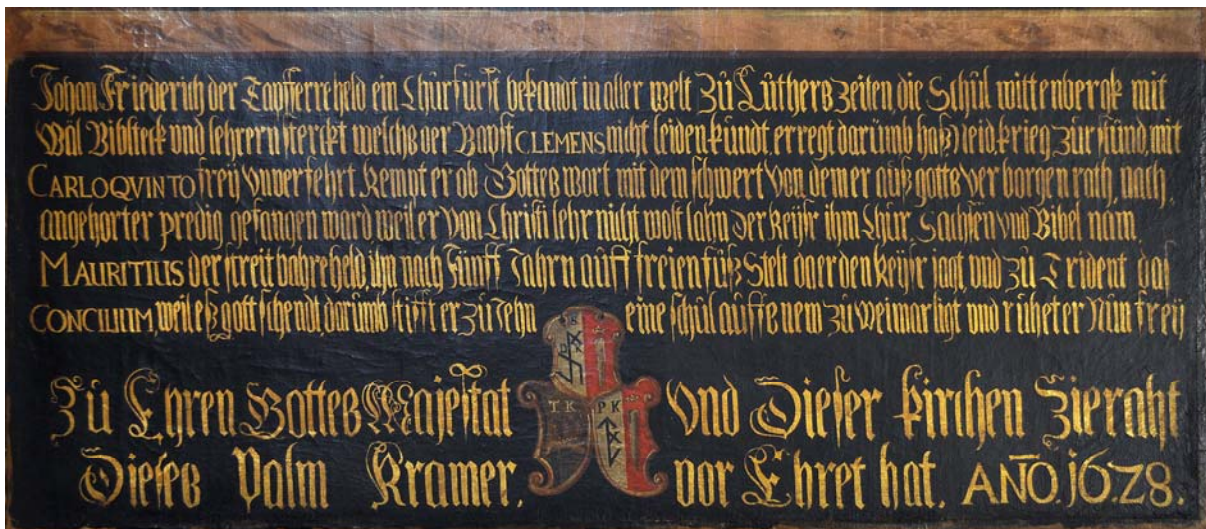 Johan Friederich der Tapfferre held ein Churfürst bekandt in aller welt Zü Lüthers zeiten die Schül wittenbergk mit
Wal Bibliteck vnd lehrern sterckt welchs der Bapst CLEMENS nicht leiden kundt, erregt darümb haß, Neid, krieg, zür stünd, mit
CARLO QVINTO frey vnverfehrt. kempt er ob Gottes wort mit dem schwert von dem er auß gotts verborgen rath, nach,
angehorter predig gefangen ward weil er von Christi lehr nicht wolt lahn der keÿsr ihm Chür Sachsen vnd Bibel nam
MAURITIUS der streitbahre held, ihn nach Fünff Jahrn aüff freien füß Stelt da er den keÿsr jagt, vnd zü Trident das
CONCILIUM, weil eß gott schendt, darümb stifft er zü Jehn eine schül aüffs new zü weimar ligt vnd rühet er Nün freÿ
Zü Ehren Gottes Majestat vnd Dieser kirchen Zieraht
Dieses Palm Kramer. vor Ehret hat. AÑO. 1628.
T K P K